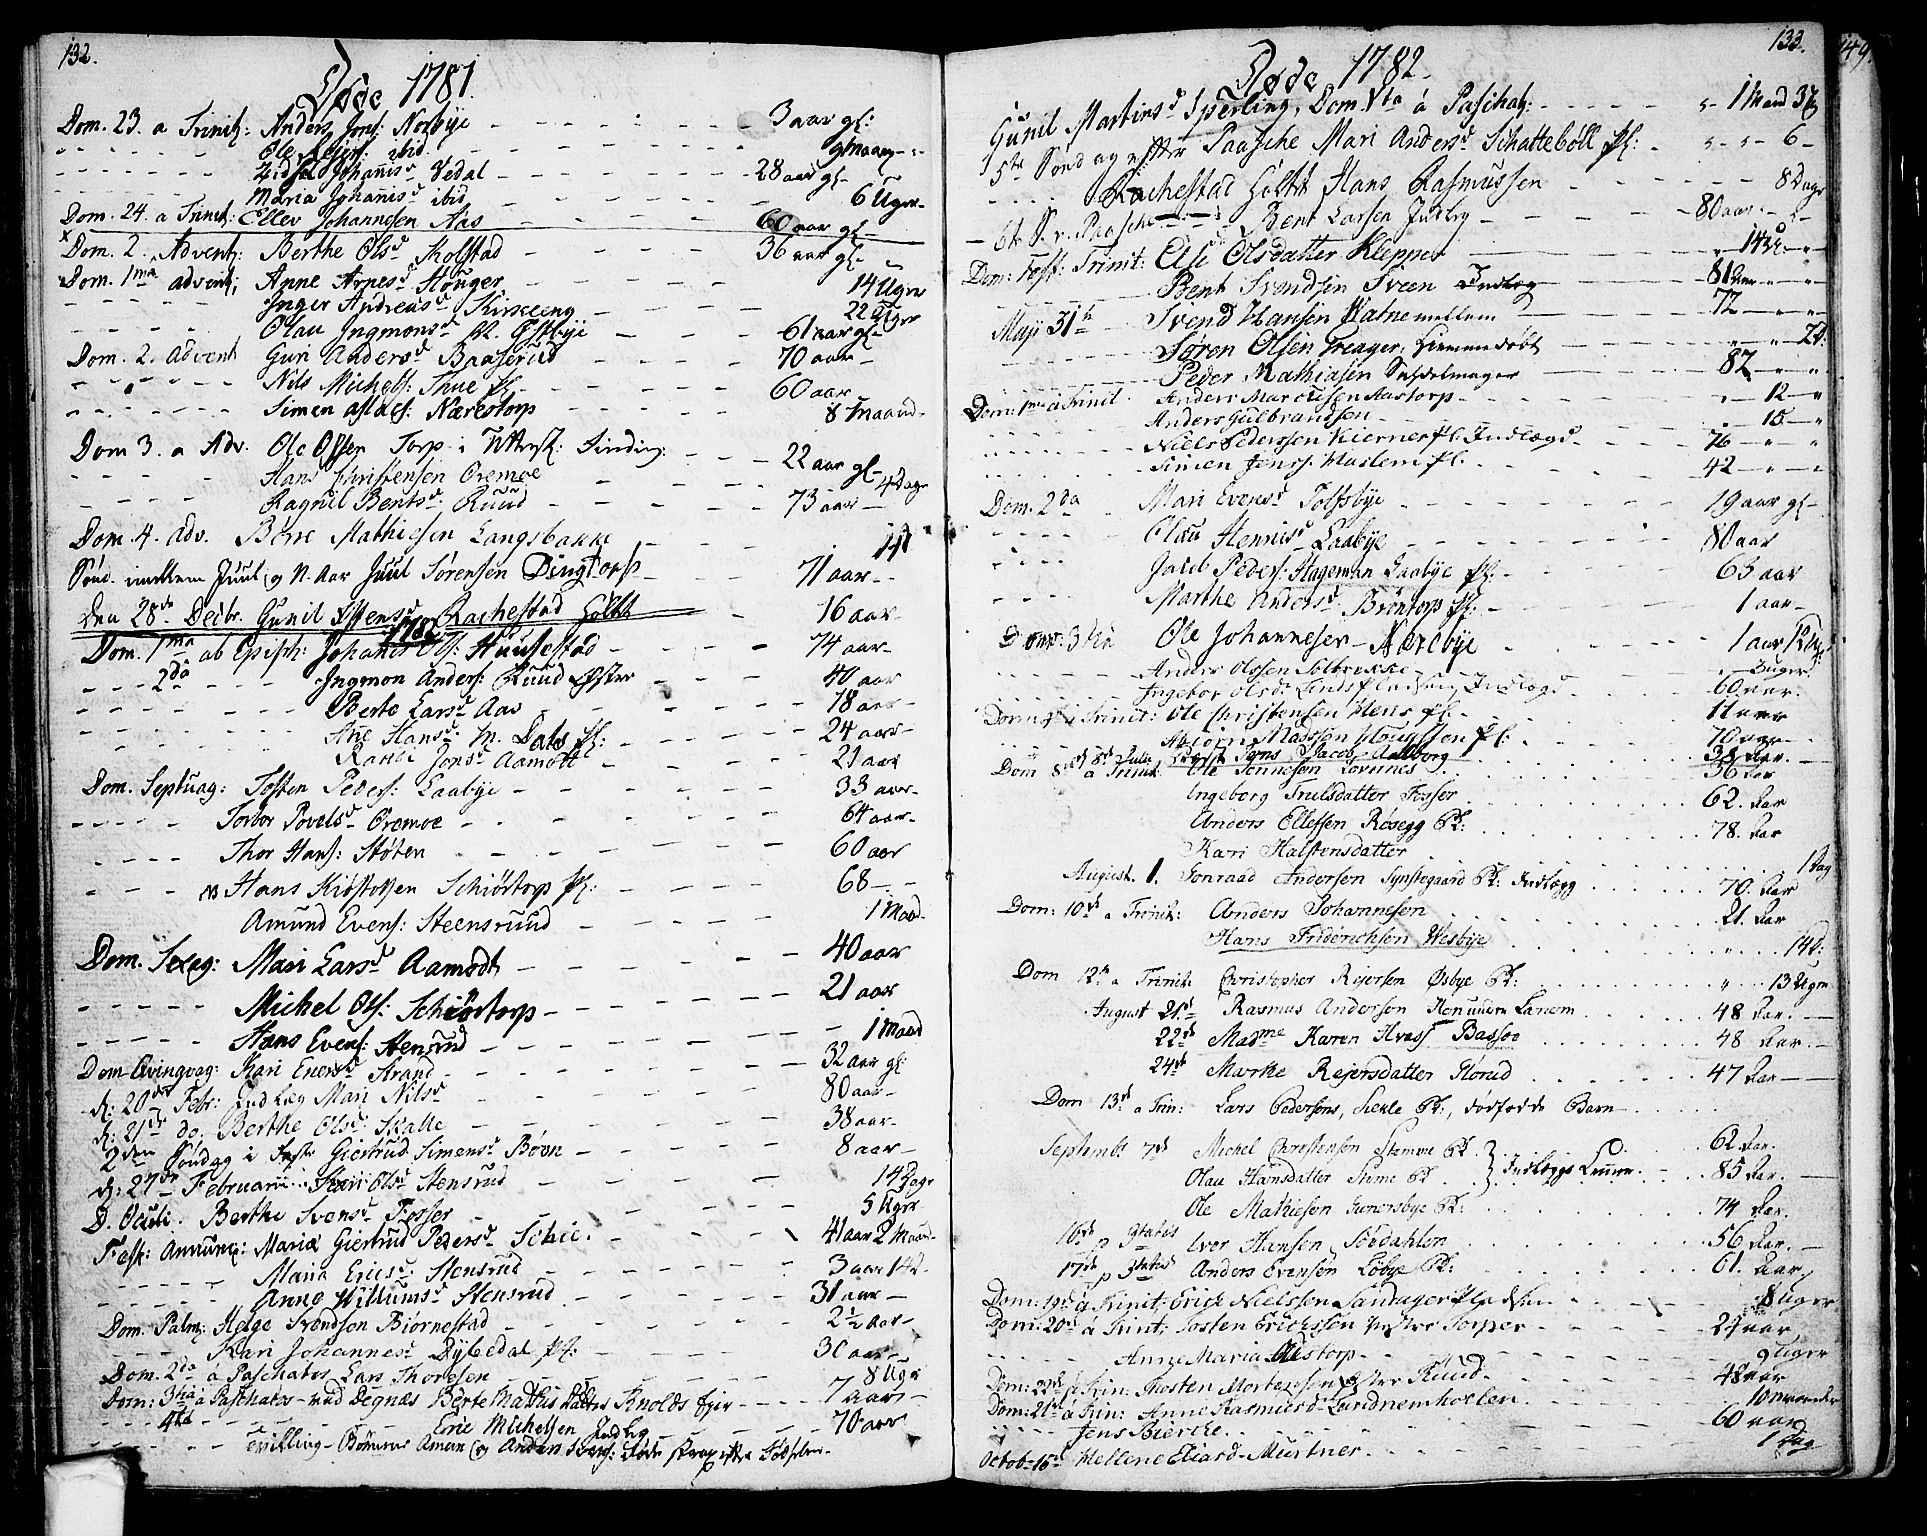 132.
Døde 1781.
Dom. 23. a Trinit: Anders Jens: Norbye - 3 aar gl:
Ole Reiers: ibid. - 9 Maan
Johannisd. Vedal - 28 aar gl-
Maria Johannisd. ibid - 6 Uger
Dom. 24. a Trinit: Ellev Johannesen Aas - 60 aar gl-
Dom. 2. Advent: Berthe Olsd. Kolstad - 36 aar gl-
Dom. 1ma advent; Anne Arnesd. Houger - 14 Uger
Inger Andreasd. Kirkeeng - 22 Uger
Olau Ingmonsd. Østbye - 61 aar gl-
Dom. 2. Advent Guri Andersd. Baaserud - 70 aar -
Nils Michels: Thue Pl. - 60 aar
Simen Aslaks: Nærestorp - 8 Maand-
Dom 3. a Adv. Ole Olsen Torp i - 22 aar gl-
Hans Christensen Oremoe - 4 Dage
Ragnil Bentsd. Ruud - 73 aar -
Dom. 4. Adv. Børre Mathiesen Langsbakke - 14
Sønd. imellem Juul og N. Aar Juul Sørensen Dingtorp - 71 aar -
Den 28de Decbr. Gunil Rachestad Holtet - 16 aar-
1782
Dom. 1ma ab Epiph: Johanes Ols: Huusestad - 74 aar-
2da Ingmon Anders: Ruud Øster - 40 aar
Berte Larsd. Aas - 18 aar-
Ane Hansd. Dals Pl: - 24 aar-
Rachel Jonsd. Aamott - 21 aar
Dom. Septuag: Tosten Peders: Laabye - 33 aar-
Torbor Povelsd. Oremoe - 64 aar-
Thor Hans: Støten - 60 aar
Hans Kiøstolsen Schiørtorp Pl: - 68 - -
Amund Evens: Steensruud - 1 Maad-
Dom. Sexag: Mari Larsd. Aamodt - 40 aar
Michel Ols: Schiörtorp - 21 aar
Hans Evens: Stensrud - 1 Maad
Dom Qvinqvag: Kari Enersd. Strand - 32 aar gl:
d: 20de Febr: Indlæg Mari Nilsd. - 80 aar-
d: 21de do: Berthe Olsd. Skalle - 38 aar-
2den Søndag i Faste Giertrud Simensd. Bøvn - 8 aar-
d: 27de Februarii Kari Olsd. Stensrud - 14 Dage
D. Oculi. Berthe Svensd. Fosser - 5 Uger
Fest: Annunc: Mariæ Giertrud Pedersd. Schie. - 41 aar 2 Maad-
Maria Ericsd. Stensrud - 3 aar 14 d-
Anne Willumsd. Stensrud - 31 aar -
Dom. Palm: Helge Svendsen Biørnestad - 2½ aar -
Kari Johannesd. Dybedal Pl: - 30 aar -
Dom. 2da a Paschatos Lars Thoresen - 8 Uger
Dom: 3tia a Paschatos - ved Degnes Berte Mathis Datter Knolds - 7 aar -
4ta Eric Michelsen Indleg - 70 aar
Tvilling-Børnene Amun og Anders døde strax efter Fødselen-

133.
Døde 1782.
Gunil Martinsd. Sperling, Dom. Vta a Paschat: - 1 Maand 3 Ug
5te Søndag efter Paasche Mari Andersd. Schattebøll Pl: - 6 -
Rachestad Holtet Hans Rasmussen - 8 Dage
6te S. e. Paasche Bent Larsen Indleg - 80 aar -
Dom: Fest: Trinit: Else Olsdatter Klepper - 14
Bent Svendsen Sveen Indleg - 81 aar
Maji 31te Svend Hansen Watnemellem - 72
Søren Olsen Treager, Hiemmedøbt - 2 d:
Peder Mathiasen Sadelmager - 87
Dom: 1ma a Trinit. Anders Marcusen Aastorp - 12
Anders Gulbrandsen - 15
Niels Pederssen Kierner Pl. Indlægs - 76
Simen Jenss. Maslem Pl. - 42
Dom. 2da Mari Evensd. Tolfsbye - 19 aar gl-
Olau Hennisd. Laabye - 80 aar
Jacob Peders: Hageman Laabye Pl: - 63 aar
Marthe Andersd. Brøntorp Pl: - 1 aar -
Dom. 3tia Ole Johannesen Norebye - 1 aar 12 Ug:
Anders Olssen Solbrekke - 3 uger
Ingebor Olsd. Linds Indlægs - 60 aar.
Dom: a Trinit: Ole Christensen Pl. - 11 aar
Asiørn Masson Pl: - 70 aar
d. 8de Julii Jens Jacob Aalborg - 38 Aar.
Dom 8de a Trinit: Ole Tønnesen - 56 Aar
Ingeborg Trulsdatter Fosser - 62. Aar
Anders Ellefsen Røsegg Pl: - 78. Aar
Kari Halstensdatter. - 1 Dag
August. 1. Conraad Andersen Synstegaard Pl: Indlægg - 70. Aar
Dom: 10de a Trinit: Anders Johannesen - 21. Aar
Hans Friderichsen Wesbye - 14 d:
Dom 12te a Trinit: Christopher Rejersen Øsbye Pl: - 13 Ugr
August 21de Rasmus Andersen Lanem - 48 Aar. -
22de Madme Karen Hvass Bassoe - 48 Aar. -
24de Marke Rejersdatter Horud - 47 Aar -
Dom 13de a Trin: Lars Pedersens, Siekle Pl:, dødfødde Barn -
Septembr 7de Michel Christensen Stemme Pl. - 62. Aar.
Olau Hansdatter Stime Pl. } Indlæggs Lemmer - 85 Aar.
Ole Mathiesen Gunersbye Pl: - 74 Aar.
16de p 3tatis Iver Hansen Sørdahlen - 56 Aar. -
17de p 3tatis Anders Evensen Løbye Pl: - 61. Aar,
Dom: 19de a Trinit: Erick Nielssen Sandager Pladsen - 8 Uger
Dom: 20de a Trinit: Tosten Erickssen Torper - 27 aar,
Anne Maria Olstorp - 9 Uger
Dom: 22de a Trin: Thosten Mortensen Øster Ruud - 48 aar
Dom: 21de a Trin: Anne Rasmusd. Lundnemhoelen - 10 maaneder
Jens Bierche - 60 aar
Octob: 16de Hellene Eliard-Murtner - 1 Dag
149.